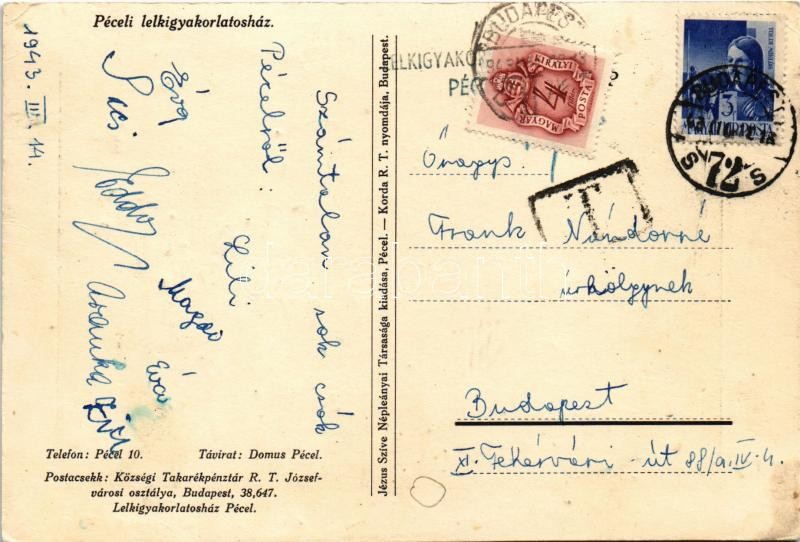 Péceli lelkigyakorlatosház.
1943. III. 14.
Számtalan sok csók
Pécelről:
Lili
Magdi
Éva
Éva
Saci
Aranka
Telefon: Pécel 10. Távirat: Domus Pécel.
Postacsekk: Községi Takarékpénztár R. T. József-
városi osztálya, Budapest, 38,647.
Lelkigyakorlatosház Pécel.
Jézus Szíve Népleányai Társasága kiadása, Pécel. — Korda R. T. nyomdája, Budapest.
ELKIGYAKO
PÉC
BUDAPES
MAGYAR KIRÁLYI POSTA
4
BUDAPEST
72
T
Őnagys.
Frank Nándorné
úrhölgynek
Budapest
XI. Fehérvári-út 88/a. IV. 4.
darabanth